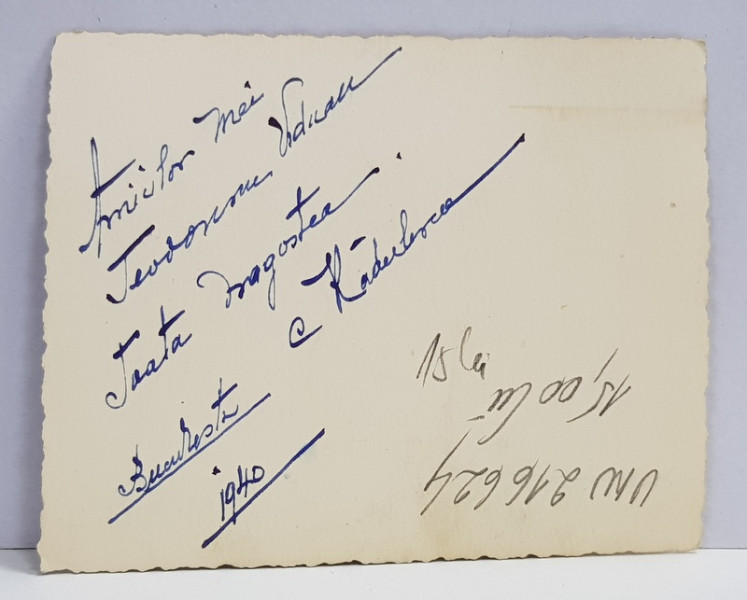 Amicilor mei
Teodorescu
Toată dragostea
C Rădulescu
București
1940
15 lei
15,00 lei
VNV 216624